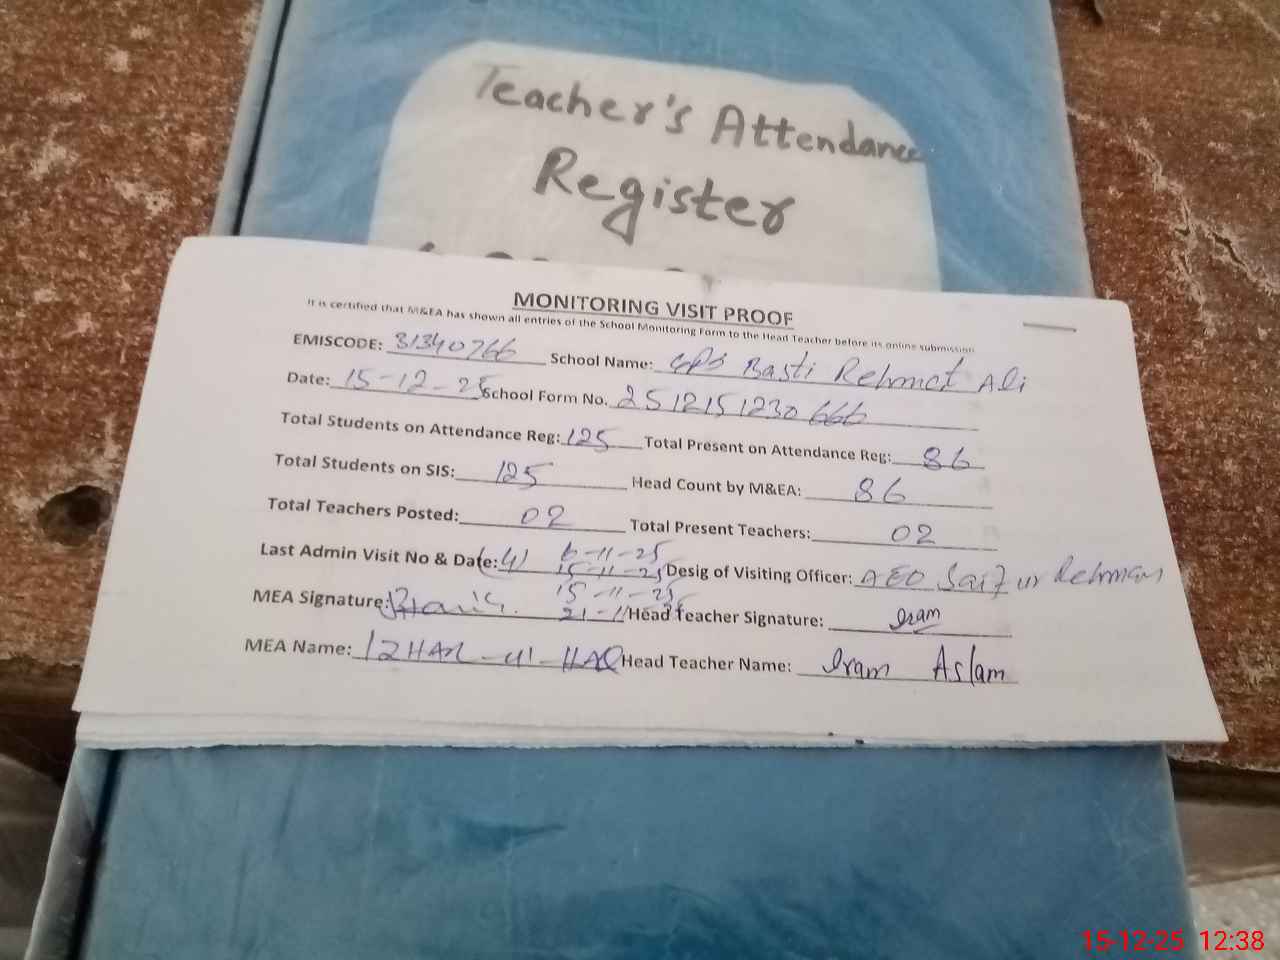 Teacher's Attendance
Register
MONITORING VISIT PROOF
It is certified that M&EA has shown all entries of the School Monitoring Form to the Head Teacher before its online submission
EMISCODE: 31340766 School Name: GPS Basti Rehmat Ali
Date: 15-12-25 School Form No. 2512151230666
Total Students on Attendance Reg: 125 Total Present on Attendance Reg: 86
Total Students on SIS: 125 Head Count by M&EA: 86
Total Teachers Posted: 02 Total Present Teachers: 02
Last Admin Visit No & Date: (4) 6-11-25
15-11-25 Desig of Visiting Officer: AEO Saif ur Rehman
15-11-25
MEA Signature: 21-11 Head Teacher Signature: Iram
MEA Name: IZHAR-ul-HAQ Head Teacher Name: Iram Aslam
15-12-25 12:38